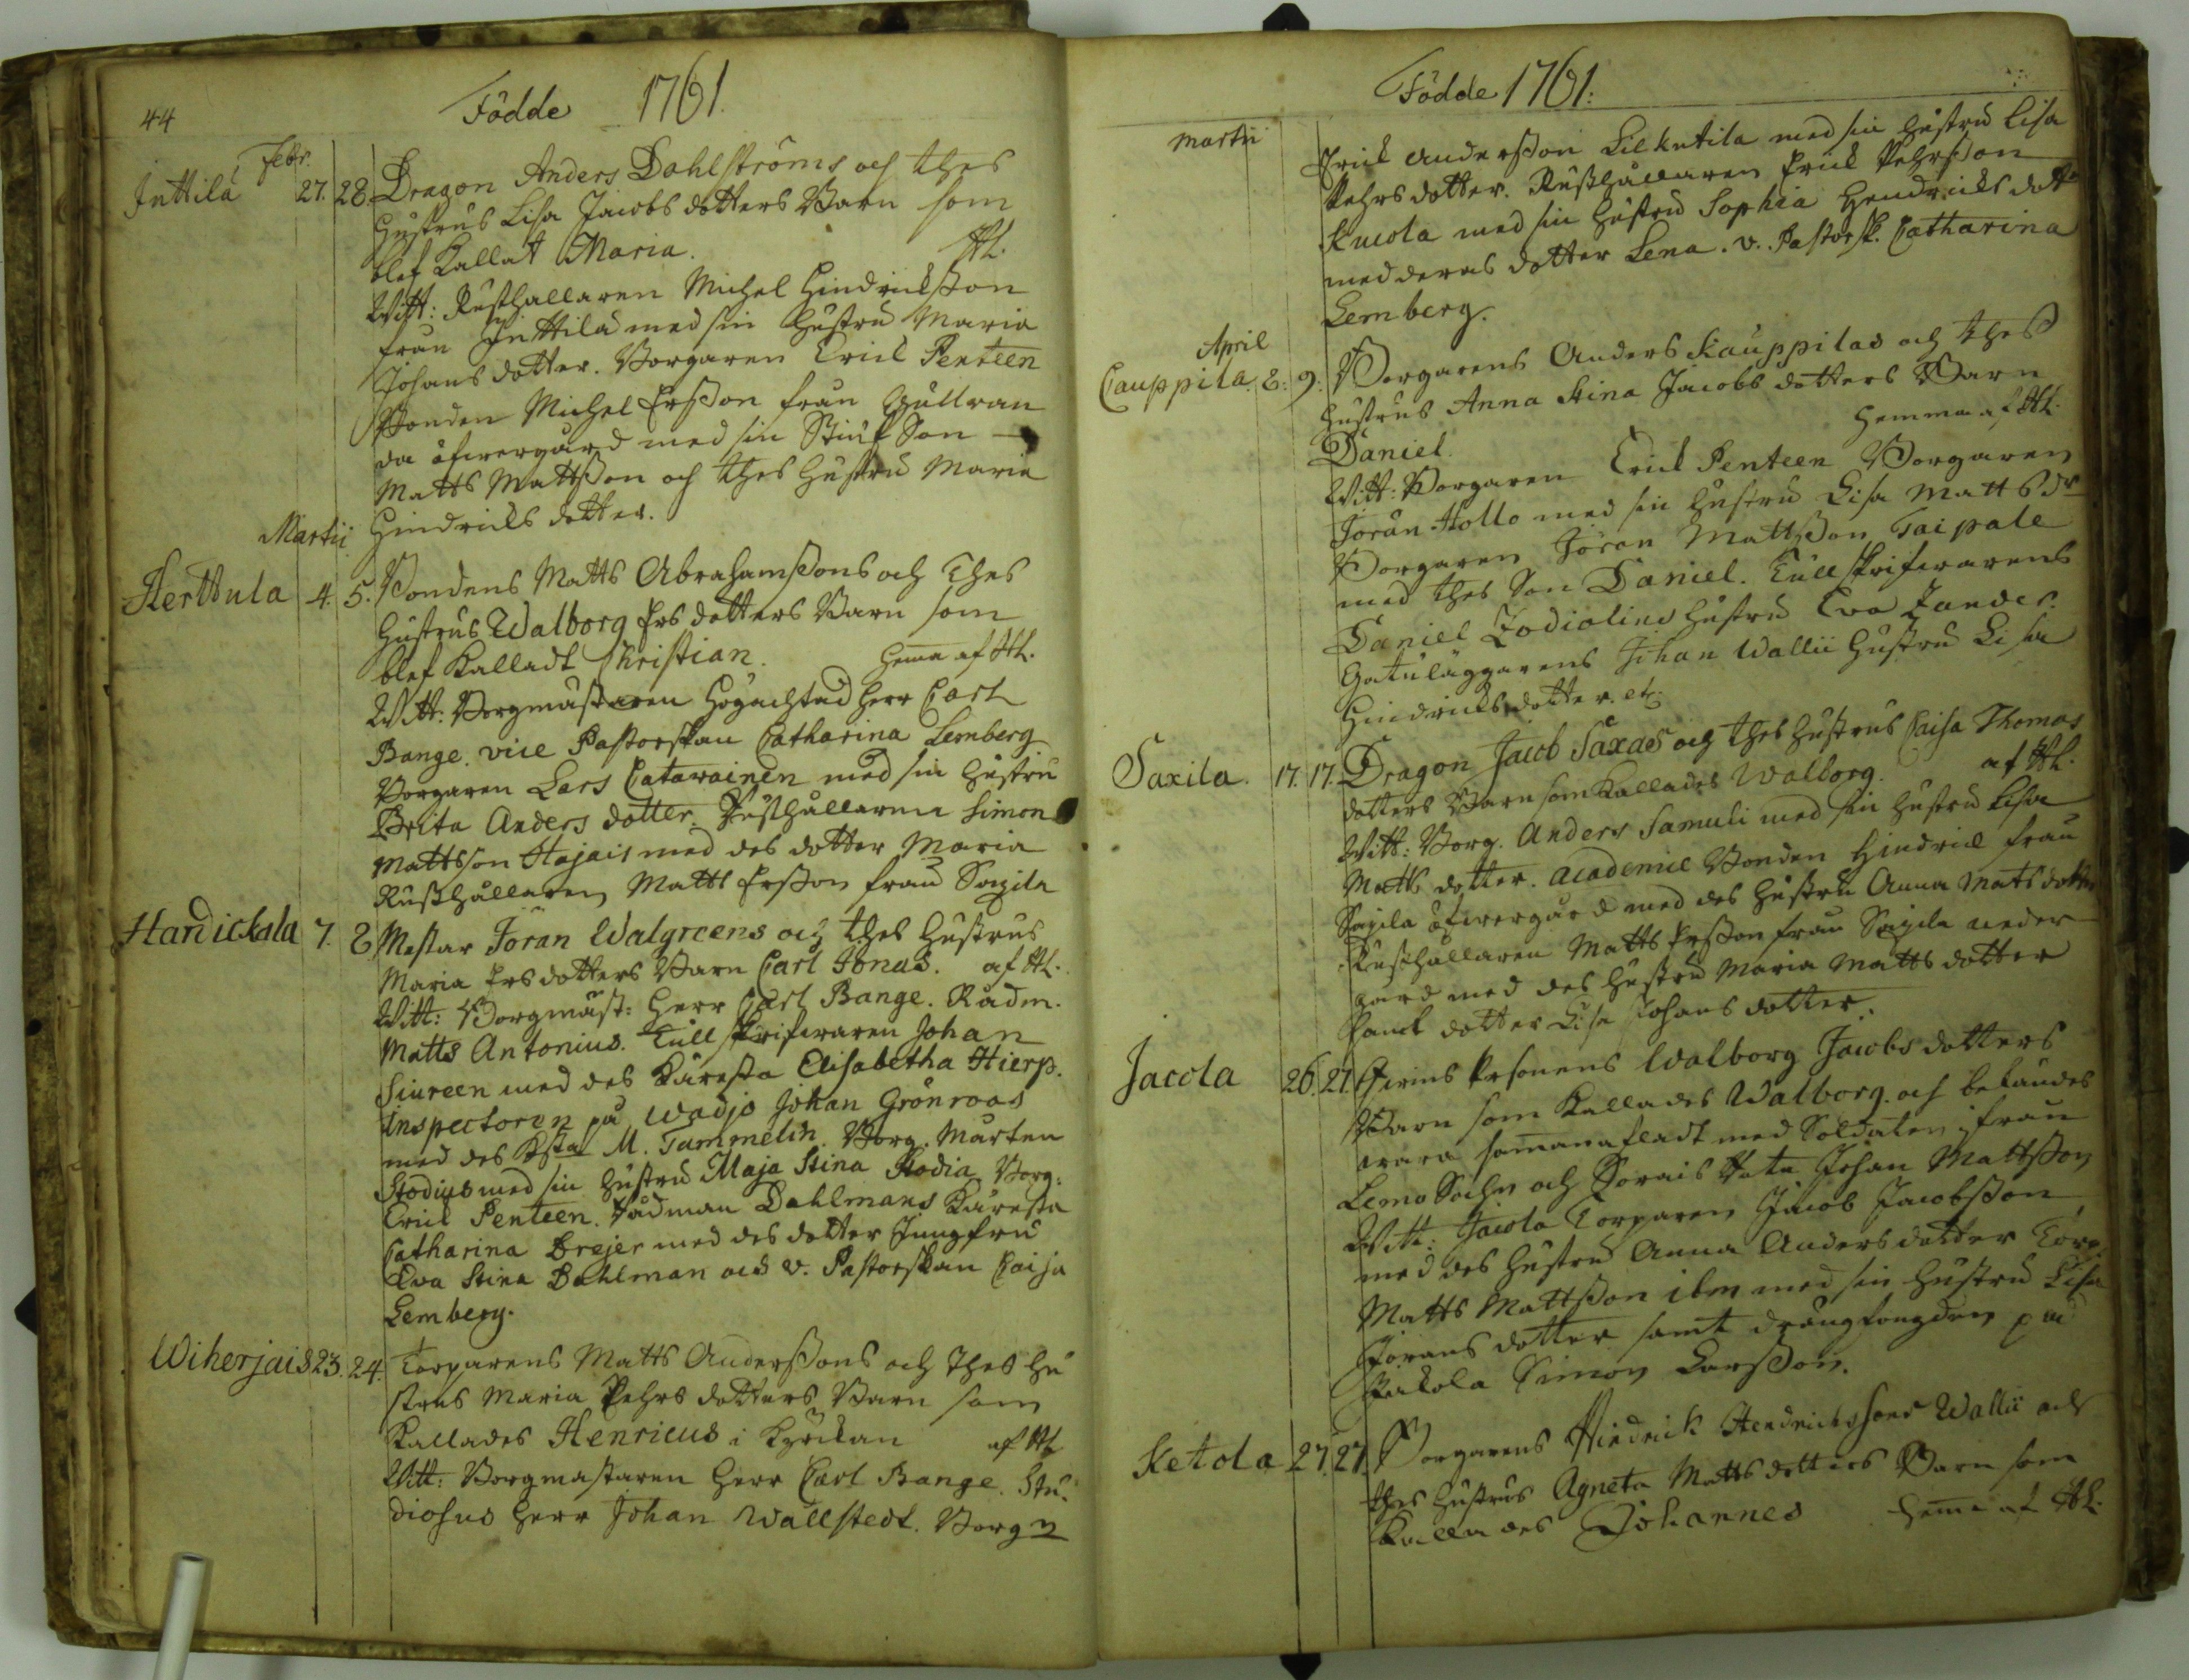 44
Födde 1761.
Febr.
Inttilä 27. 28. Dragon Anders Dahlströms och thes
hustrus Lisa Jacobs dotters Barn som
blef kallat Maria. HL.
Witt: Rusthållaren Michel Hindrichsson
från Inttilä med sin hustru Maria
Johans dotter. Borgaren Erick Penteen
Bonden Michel Ersson från Gullran
da öfwergård med sin Stiuf Son
Matts Mattsson och thes hustru Maria
Hindrichs dotter.
Martii
Herttula 4. 5. Bondens Matts Abrahamssons och thes
hustrus Walborg Ers dotters Barn som
blef kalladt Christian. hema af HL.
Witt: Borgmästaren Högachtad Herr Carl
Bange. vice Pastorskan Catharina Lemberg
Borgaren Lars Catawainen med sin hustru
Brita Anders dotter. Rusthållaren Simon
Mattsson Hajais med des dotter Maria
Rusthållaren Matts Ersson från Saxila
Handickala 7. 8 Mästar Jöran Walgreens och thes hustrus
Maria Ers dotters Barn Carl Jonas. af HL.
Witt: Borgmäst: Herr Carl Bange. Rådm.
Matts Antonius. Tull skrifwaren Johan
Siureen med des Käresta Elisabetha Hierp.
Inspectoren på Wadjo Johan Grönroos
med des Ksta M. Tammelin. Borg. Mårten
Stodius med sin hustru Maja Stina Stodia. Borg:
Erick Penteen. Rådman Dahlmans Käresta
Catharina Brejer med des dotter Jungfru
Eva Stina Dahlman och v. Pastorskan Caisa
Lemberg.
Wiherjais 23. 24. Torparens Matts Anderssons och thes hu
strus Maria Pehrs dotters Barn som
kallades Henricus i kyrckan af HL
Witt: Borgmästaren Herr Carl Bange. Stu-
diosus Herr Johan Wallstedt. Borgn
Födde 1761:
Martii
Erick Andersson Lilkutila med sin hustru Lisa
Pehrs dotter. Rusthållaren Erick Pehrsson
Kucola med sin hustru Sophia Hendrichs dott
med deras dotter Lena. v. Pastorsk. Catharina
Lemberg.
April
Cauppila. 8: 9: Borgarens Anders Kauppilas och thes
hustrus Anna Stina Jacobs dotters Barn
Daniel. hemma af HL.
Witt: Borgaren Erick Penteen Borgaren
Jöran Hollo med sin hustru Lisa Matts dr
Borgaren Jöran Mattsson Taipale
med thes Son Daniel. Tull skrifwarens
Daniel Zodiolins hustru Eva Zander.
Gatuläggarens Johan Wallii hustru Lisa
Hindrichs dotter. etc
Saxila. 17. 17. Dragon Jacob Saxaes och thes hustrus Caisa Thomas
dotters Barn som kallades Walborg. af HL.
Witt: Borg. Anders Samuli med sin hustru Lisa
Matts dotter. Academie Bonden Hindrick från
Saxila öfwergård med des hustru Anna Mats dotter
Rusthållaren Matts Ersson från Saxila neder
gård med des hustru Maria Matts dotter
dotter Lisa Johans dotter.
Jacola 26. 27. Qwins Personens Walborg Jacobs dotters
Barn som kallades Walborg. och bekändes
wara samanafladt med Soldaten ifrån
Lemo Sochn och Sorais Rote Johan Mattsson
Witt: Jacola Torparen Jacob Jacobsson
med des hustru Anna Anders dotter Torp
Matts Mattsson ibm med sin hustru Lisa
Jörans dotter samt drängfougden på
Jakola Simon Larsson.
Ketola 27. 27. Borgarens Hindrich Hendrichssons Wallii och
thes hustrus Agneta Matts dotters Barn som
kallades Johannes hema af HL.